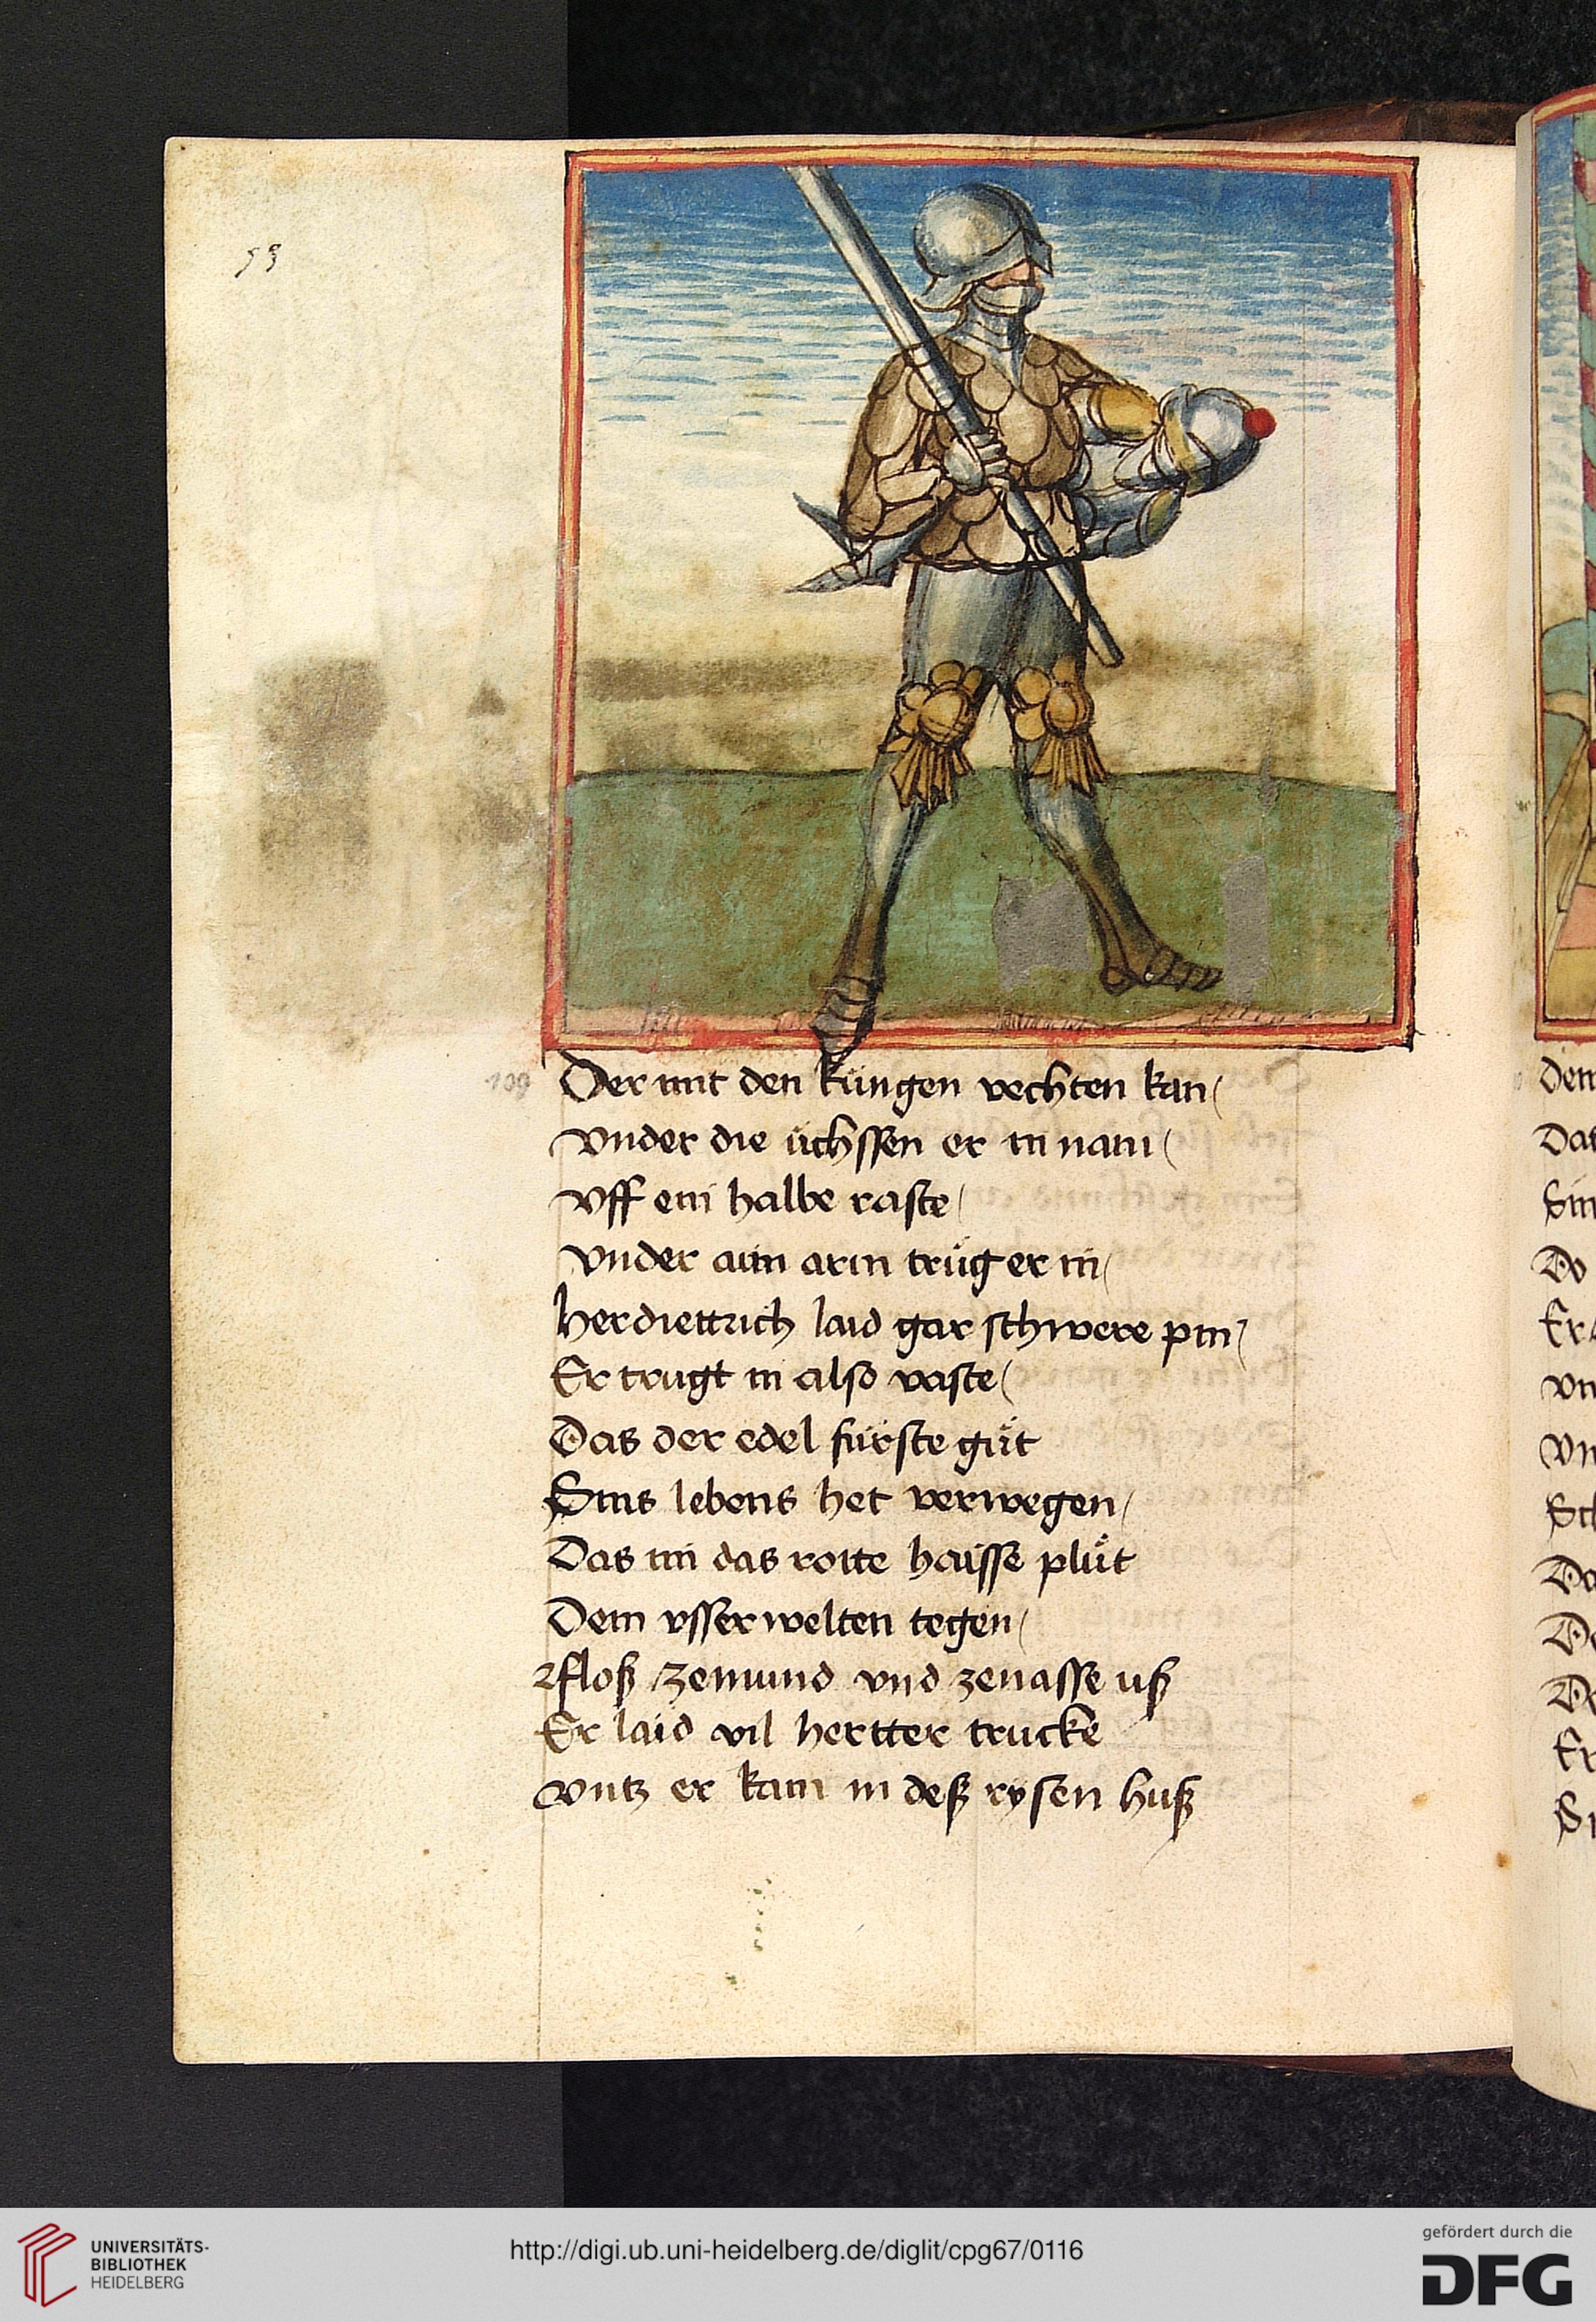 53
109
Der mit den küngen vechten kan
vnder die üchssen er in nam
vff ein halbe raste
vnder aim arm trüg er in
herdiettrich laid gar schwere pin
Er trugt in also vaste
Das der edel fürste güt
Sins lebens het verwegen
Das im das rotte haisse plüt
Dem vsserwelten tegen
floß zemund vnd zenasse uß
Er laid vil hertter trucke
vntz er kam in deß rysen huß
Dem
Sin
Do
UNIVERSITÄTS-
BIBLIOTHEK
HEIDELBERG
http://digi.ub.uni-heidelberg.de/diglit/cpg67/0116
gefördert durch die
DFG